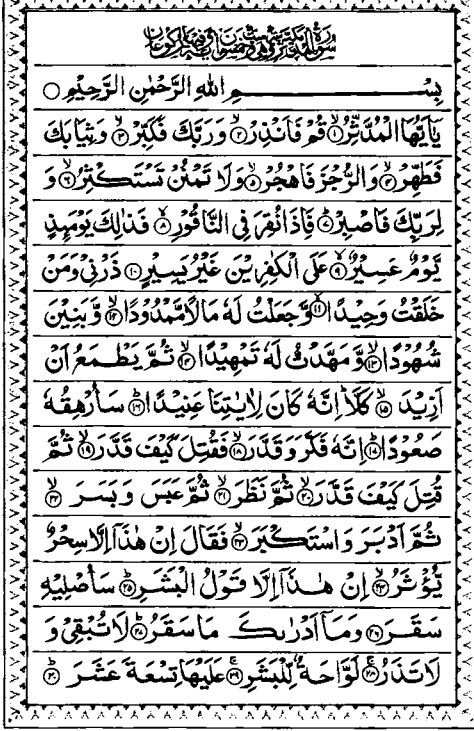 سورة المدثر مكية وهي ست وخمسون آية وفيها ركوعان
بِسْمِ اللهِ الرَّحْمٰنِ الرَّحِيْمِ ○
يٰۤاَيُّهَا الْمُدَّثِّرُ ۙ﴿۱﴾ قُمْ فَاَنْذِرْ ۙ﴿۲﴾ وَرَبَّكَ فَكَبِّرْ ۙ﴿۳﴾ وَثِيَابَكَ
فَطَهِّرْ ۙ﴿۴﴾ وَالرُّجْزَ فَاهْجُرْ ۙ﴿۵﴾ وَلَا تَمْنُنْ تَسْتَكْثِرُ ۙ﴿۶﴾ وَ
لِرَبِّكَ فَاصْبِرْ ؕ﴿۷﴾ فَاِذَا نُقِرَ فِي النَّاقُوْرِ ۙ﴿۸﴾ فَذٰلِكَ يَوْمَىِٕذٍ
يَّوْمٌ عَسِيْرٌ ۙ﴿۹﴾ عَلَى الْكٰفِرِيْنَ غَيْرُ يَسِيْرٍ ﴿۱۰﴾ ذَرْنِيْ وَمَنْ
خَلَقْتُ وَحِيْدًا ۙ﴿۱۱﴾ وَّجَعَلْتُ لَهٗ مَالًا مَّمْدُوْدًا ۙ﴿۱۲﴾ وَّبَنِيْنَ
شُهُوْدًا ۙ﴿۱۳﴾ وَّمَهَّدْتُّ لَهٗ تَمْهِيْدًا ۙ﴿۱۴﴾ ثُمَّ يَطْمَعُ اَنْ
اَزِيْدَ ۙ﴿۱۵﴾ كَلَّا ؕ اِنَّهٗ كَانَ لِاٰيٰتِنَا عَنِيْدًا ؕ﴿۱۶﴾ سَاُرْهِقُهٗ
صَعُوْدًا ؕ﴿۱۷﴾ اِنَّهٗ فَكَّرَ وَقَدَّرَ ۙ﴿۱۸﴾ فَقُتِلَ كَيْفَ قَدَّرَ ۙ﴿۱۹﴾ ثُمَّ
قُتِلَ كَيْفَ قَدَّرَ ۙ﴿۲۰﴾ ثُمَّ نَظَرَ ۙ﴿۲۱﴾ ثُمَّ عَبَسَ وَبَسَرَ ۙ﴿۲۲﴾
ثُمَّ اَدْبَرَ وَاسْتَكْبَرَ ۙ﴿۲۳﴾ فَقَالَ اِنْ هٰذَاۤ اِلَّا سِحْرٌ
يُّؤْثَرُ ۙ﴿۲۴﴾ اِنْ هٰذَاۤ اِلَّا قَوْلُ الْبَشَرِ ؕ﴿۲۵﴾ سَاُصْلِيْهِ
سَقَرَ ﴿۲۶﴾ وَمَاۤ اَدْرٰىكَ مَا سَقَرُ ؕ﴿۲۷﴾ لَا تُبْقِيْ وَ
لَا تَذَرُ ۚ﴿۲۸﴾ لَوَّاحَةٌ لِّلْبَشَرِ ۚ﴿۲۹﴾ عَلَيْهَا تِسْعَةَ عَشَرَ ؕ﴿۳۰﴾